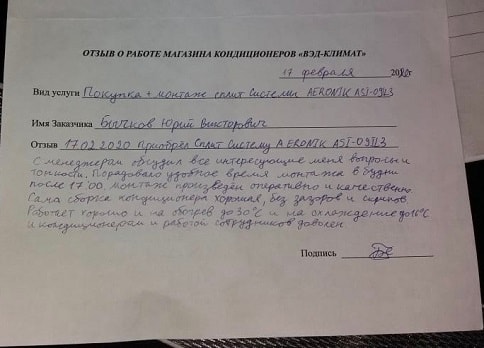 ОТЗЫВ О РАБОТЕ МАГАЗИНА КОНДИЦИОНЕРОВ «ВЭД-КЛИМАТ»
17 февраля 2020г
Вид услуги Покупка + монтаж сплит системы AERONIK ASI-09IL3
Имя Заказчика Бычков Юрий Викторович
Отзыв 17.02.2020 Приобрёл Сплит Систему AERONIK ASI-09IL3
С менеджерам обсудил все интересующие меня вопросы и
тонкости. Порадовало удобное время монтажа в будни
после 17:00. монтаж произведён оперативно и качественно
Сама сборка кондиционера хорошая, без зазоров и скрипов.
Работает хорошо и на обогрев до 30°С и на охлаждение до 16°С
и кондиционерам и работой сотрудников доволен.
Подпись